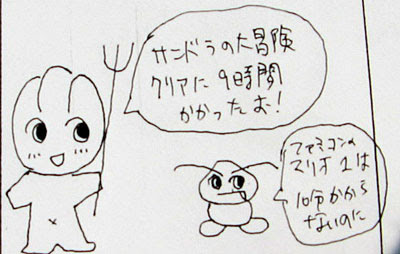 サンドラの大冒険
クリアに9時間
かかったお!
ファミコンの
マリオ1は
10分かから
ないのに